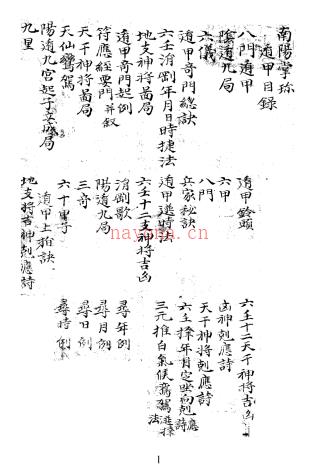 南陽掌珍
遁甲目錄
八門遁甲
陰遁九局
六儀
遁甲奇門總訣
六壬消剛年月日時捷法
地支神將啚局
遁甲奇門起例
符應經要門并叙
天干神將啚局
天仙鸞駕
陽遁九宮起子
九里
遁甲鈴頭
六甲
八門
兵家秘訣
遁甲選時
六壬十二支神將吉凶
消剛歌
陽遁九局
三奇
六十
遁甲上推訣
地支將吉神剋應詩
六壬十二天干神將吉凶
凶神剋應詩
天干神將剋應詩
六壬擇年月定坐向剋應詩
三元推白氣候鸞駕
尋年例
尋月例
尋日例
尋時例
nayona.cn
1